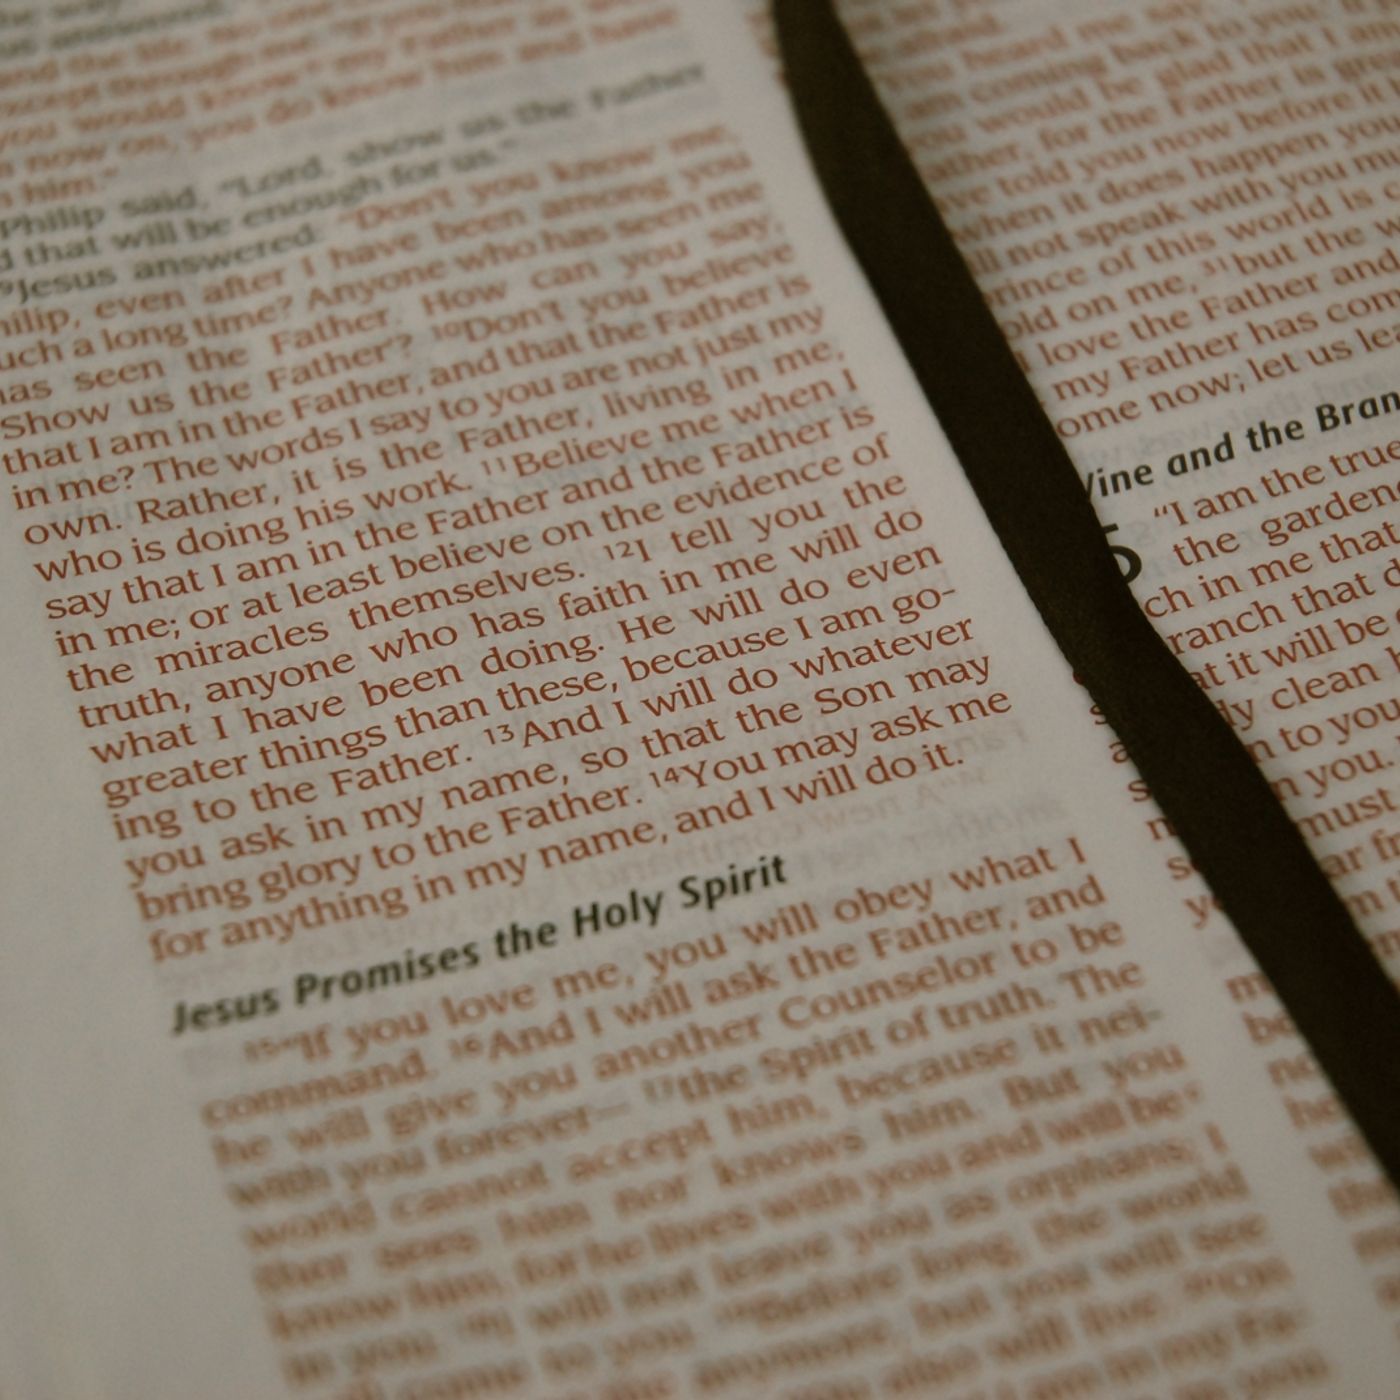 answered
except through me. If you
you would know my Father as
now on, you do know him and have
him."
Philip said, "Lord, show us the Father
d that will be enough for us."
⁹Jesus answered: "Don't you know me,
hilip, even after I have been among you
uch a long time? Anyone who has seen me
has seen the Father. How can you say,
'Show us the Father'? ¹⁰Don't you believe
that I am in the Father, and that the Father is
in me? The words I say to you are not just my
own. Rather, it is the Father, living in me,
who is doing his work. ¹¹Believe me when I
say that I am in the Father and the Father is
in me; or at least believe on the evidence of
the miracles themselves. ¹²I tell you the
truth, anyone who has faith in me will do
what I have been doing. He will do even
greater things than these, because I am go-
ing to the Father. ¹³And I will do whatever
you ask in my name, so that the Son may
bring glory to the Father. ¹⁴You may ask me
for anything in my name, and I will do it.
Jesus Promises the Holy Spirit
¹⁵"If you love me, you will obey what I
command. ¹⁶And I will ask the Father, and
he will give you another Counselor to be
with you forever— ¹⁷the Spirit of truth. The
world cannot accept him, because it nei-
ther sees him nor knows him. But you
know him, for he lives with you and will be
in you. ¹⁸I will not leave you as orphans; I
will come to you. ¹⁹Before long, the world
anymore, but you will see
also will live. ²⁰On
am in my Fa-
heard me say,
am coming back to you
you would be glad that I am
ather, for the Father is
ve told you now before it
when it does happen you
ll not speak with you
rince of this world is
old on me, ³¹but the
I love the Father and
my Father has com
ome now; let us lea
Vine and the Bran
5 "I am the true
the garden
ch in me that
ranch that
at it will be
dy clean
n to you
n you.
must
ar fr